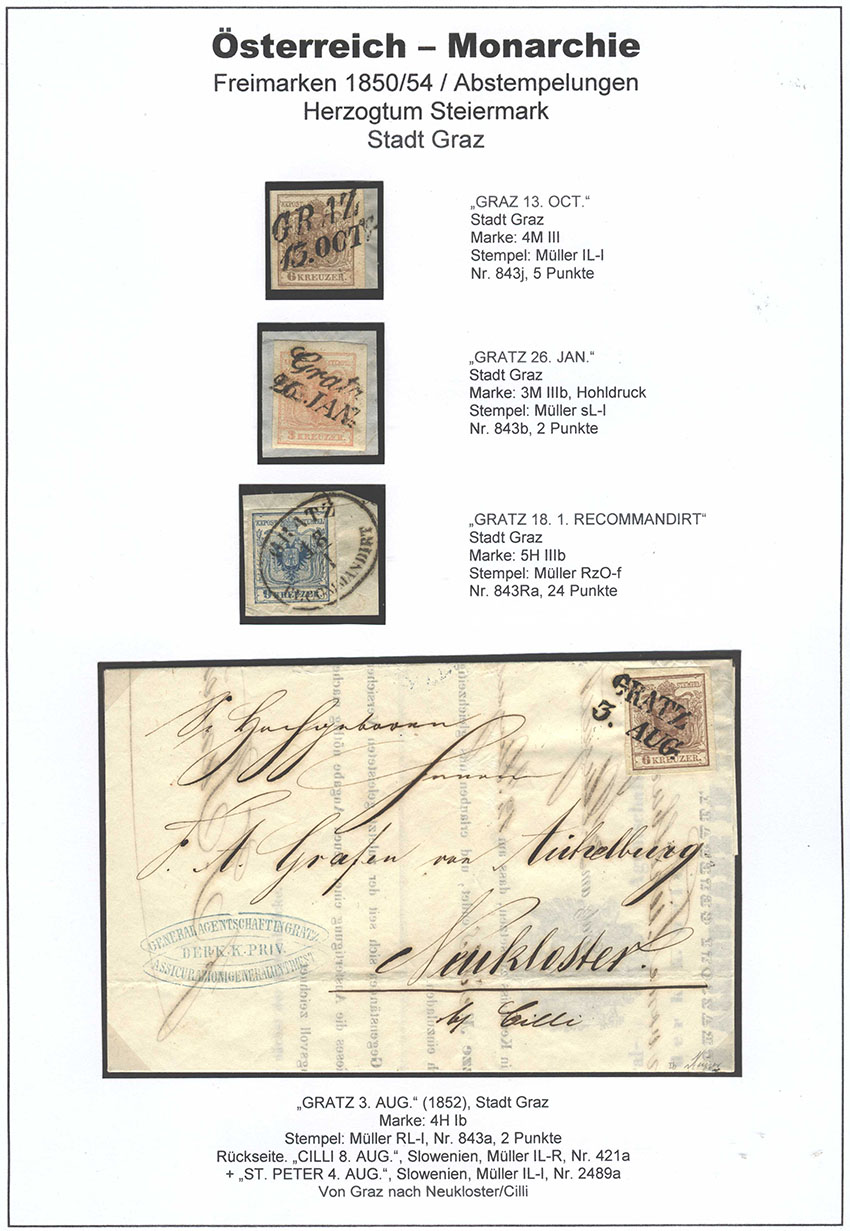 Österreich – Monarchie
Freimarken 1850/54 / Abstempelungen
Herzogtum Steiermark
Stadt Graz
GRAZ
13. OCT.
6 KREUZER.
„GRAZ 13. OCT.“
Stadt Graz
Marke: 4M III
Stempel: Müller IL-I
Nr. 843j, 5 Punkte
Gratz
26. JAN.
3 KREUZER.
„GRATZ 26. JAN.“
Stadt Graz
Marke: 3M IIIb, Hohldruck
Stempel: Müller sL-I
Nr. 843b, 2 Punkte
GRATZ
18
1
RECOMMANDIRT
9 KREUZER.
„GRATZ 18. 1. RECOMMANDIRT“
Stadt Graz
Marke: 5H IIIb
Stempel: Müller RzO-f
Nr. 843Ra, 24 Punkte
GRATZ
3. AUG.
6 KREUZER.
Sr Hochgeboren
Herrn
F. A. Grafen von Aichelburg
Neukloster.
b/ Cilli
GENERAL AGENTSCHAFT IN GRATZ
DER K. K. PRIV.
ASSICURAZIONI GENERALI IN TRIEST
„GRATZ 3. AUG.“ (1852), Stadt Graz
Marke: 4H Ib
Stempel: Müller RL-I, Nr. 843a, 2 Punkte
Rückseite. „CILLI 8. AUG.“, Slowenien, Müller IL-R, Nr. 421a
+ „ST. PETER 4. AUG.“, Slowenien, Müller IL-I, Nr. 2489a
Von Graz nach Neukloster/Cilli